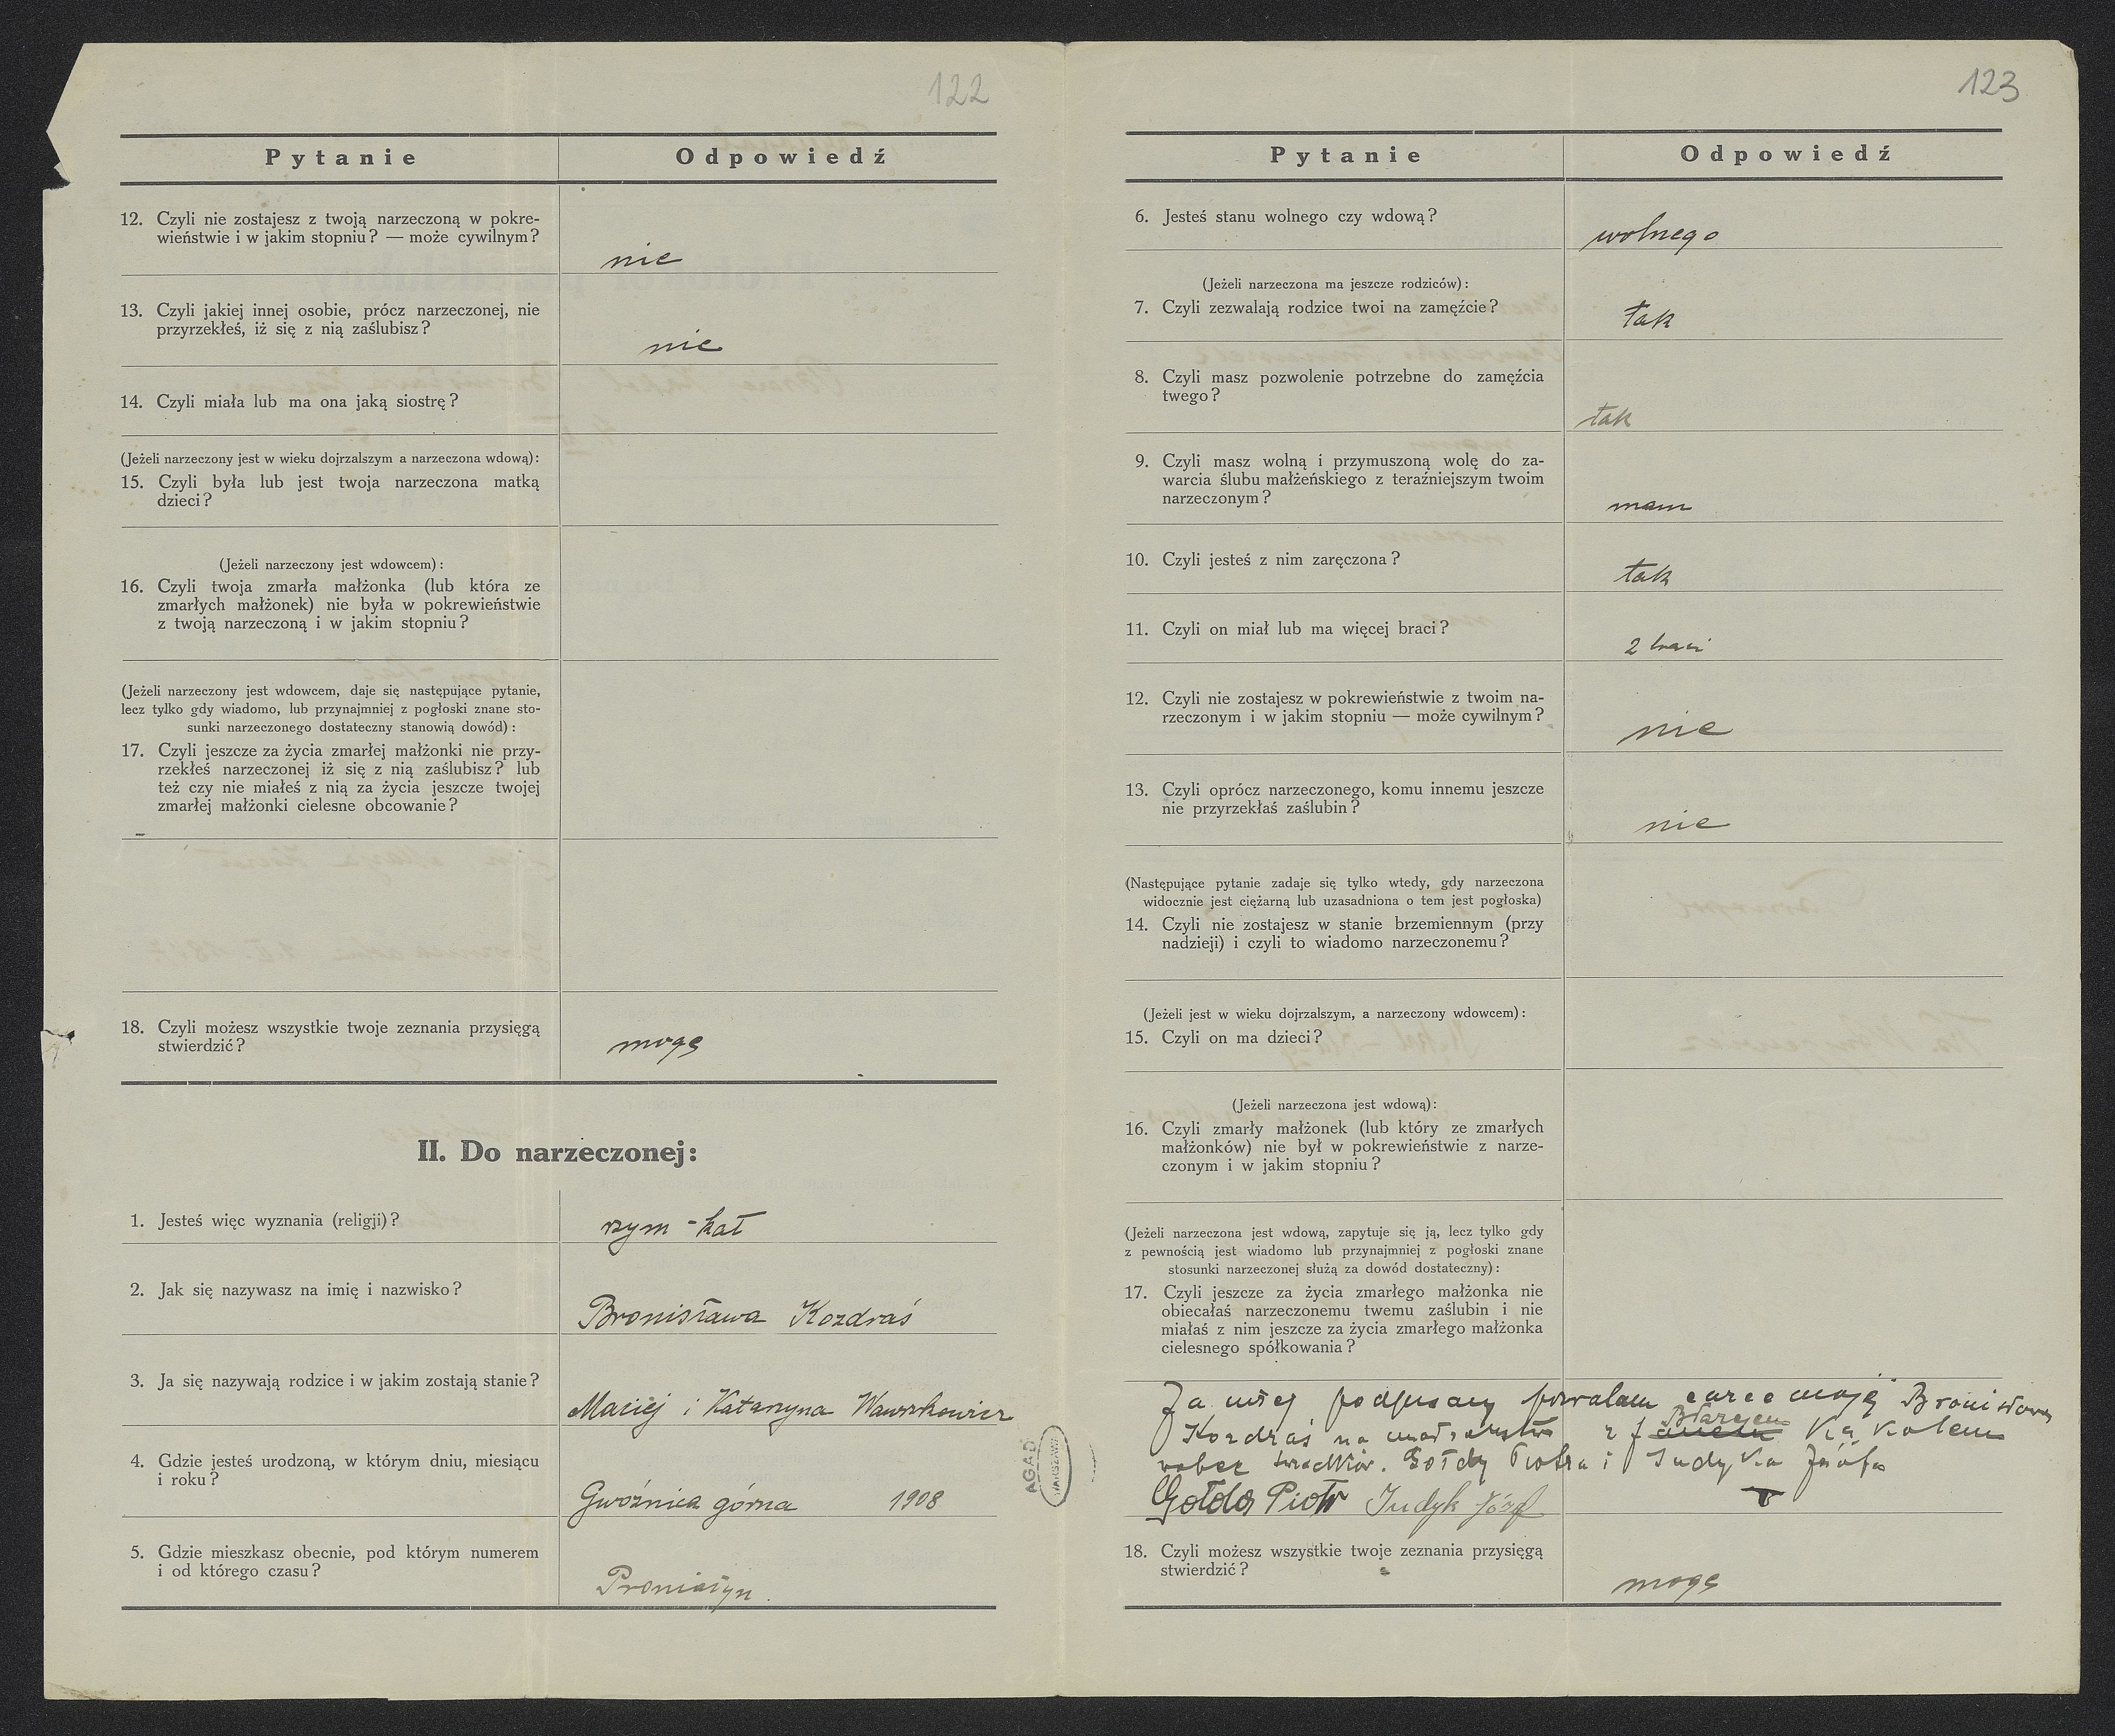 122
Pytanie Odpowiedź
12. Czyli nie zostajesz z twoją narzeczoną w pokre-
wieństwie i w jakim stopniu? — może cywilnym?
nie
13. Czyli jakiej innej osobie, prócz narzeczonej, nie
przyrzekłeś, iż się z nią zaślubisz?
nie
14. Czyli miała lub ma ona jaką siostrę?
(Jeżeli narzeczony jest w wieku dojrzalszym a narzeczona wdową):
15. Czyli była lub jest twoja narzeczona matką
dzieci?
(Jeżeli narzeczony jest wdowcem):
16. Czyli twoja zmarła małżonka (lub która ze
zmarłych małżonek) nie była w pokrewieństwie
z twoją narzeczoną i w jakim stopniu?
(Jeżeli narzeczony jest wdowcem, daje się następujące pytanie,
lecz tylko gdy wiadomo, lub przynajmniej z pogłoski znane sto-
sunki narzeczonego dostateczny stanowią dowód):
17. Czyli jeszcze za życia zmarłej małżonki nie przy-
rzekłeś narzeczonej iż się z nią zaślubisz? lub
też czy nie miałeś z nią za życia jeszcze twojej
zmarłej małżonki cielesne obcowanie?
18. Czyli możesz wszystkie twoje zeznania przysięgą
stwierdzić?
mogę
II. Do narzeczonej:
1. Jesteś więc wyznania (religji)?
rzym-kat
2. Jak się nazywasz na imię i nazwisko?
Bronisława Kozdraś
3. Ja się nazywają rodzice i w jakim zostają stanie?
Maciej i Katarzyna Wawrzkowicz
4. Gdzie jesteś urodzoną, w którym dniu, miesiącu
i roku?
Gwoźnica górna 1908
5. Gdzie mieszkasz obecnie, pod którym numerem
i od którego czasu?
Proniatyn.
AGAD
WARSZAWA
123
Pytanie Odpowiedź
6. Jesteś stanu wolnego czy wdową?
wolnego
(Jeżeli narzeczona ma jeszcze rodziców):
7. Czyli zezwalają rodzice twoi na zamęźcie?
tak
8. Czyli masz pozwolenie potrzebne do zamęźcia
twego?
tak
9. Czyli masz wolną i przymuszoną wolę do za-
warcia ślubu małżeńskiego z teraźniejszym twoim
narzeczonym?
mam
10. Czyli jesteś z nim zaręczona?
tak
11. Czyli on miał lub ma więcej braci?
2 braci
12. Czyli nie zostajesz w pokrewieństwie z twoim na-
rzeczonym i w jakim stopniu — może cywilnym?
nie
13. Czyli oprócz narzeczonego, komu innemu jeszcze
nie przyrzekłaś zaślubin?
nie
(Następujące pytanie zadaje się tylko wtedy, gdy narzeczona
widocznie jest ciężarną lub uzasadniona o tem jest pogłoska)
14. Czyli nie zostajesz w stanie brzemiennym (przy
nadzieji) i czyli to wiadomo narzeczonemu?
(Jeżeli jest w wieku dojrzalszym, a narzeczony wdowcem):
15. Czyli on ma dzieci?
(Jeżeli narzeczona jest wdową):
16. Czyli zmarły małżonek (lub który ze zmarłych
małżonków) nie był w pokrewieństwie z narze-
czonym i w jakim stopniu?
(Jeżeli narzeczona jest wdową, zapytuje się ją, lecz tylko gdy
z pewnością jest wiadomo lub przynajmniej z pogłoski znane
stosunki narzeczonej służą za dowód dostateczny):
17. Czyli jeszcze za życia zmarłego małżonka nie
obiecałaś narzeczonemu twemu zaślubin i nie
miałaś z nim jeszcze za życia zmarłego małżonka
cielesnego spółkowania?
Ja niżej podpisany pozwalam córce moję Bronisławę
Błażejem
Kozdraś na małżeństwo z Kąkolem
wobec świadków. Gołdy Piotra i Indyka Józefa
Gołda Piotr Indyk Józef
18. Czyli możesz wszystkie twoje zeznania przysięgą
stwierdzić?
mogę